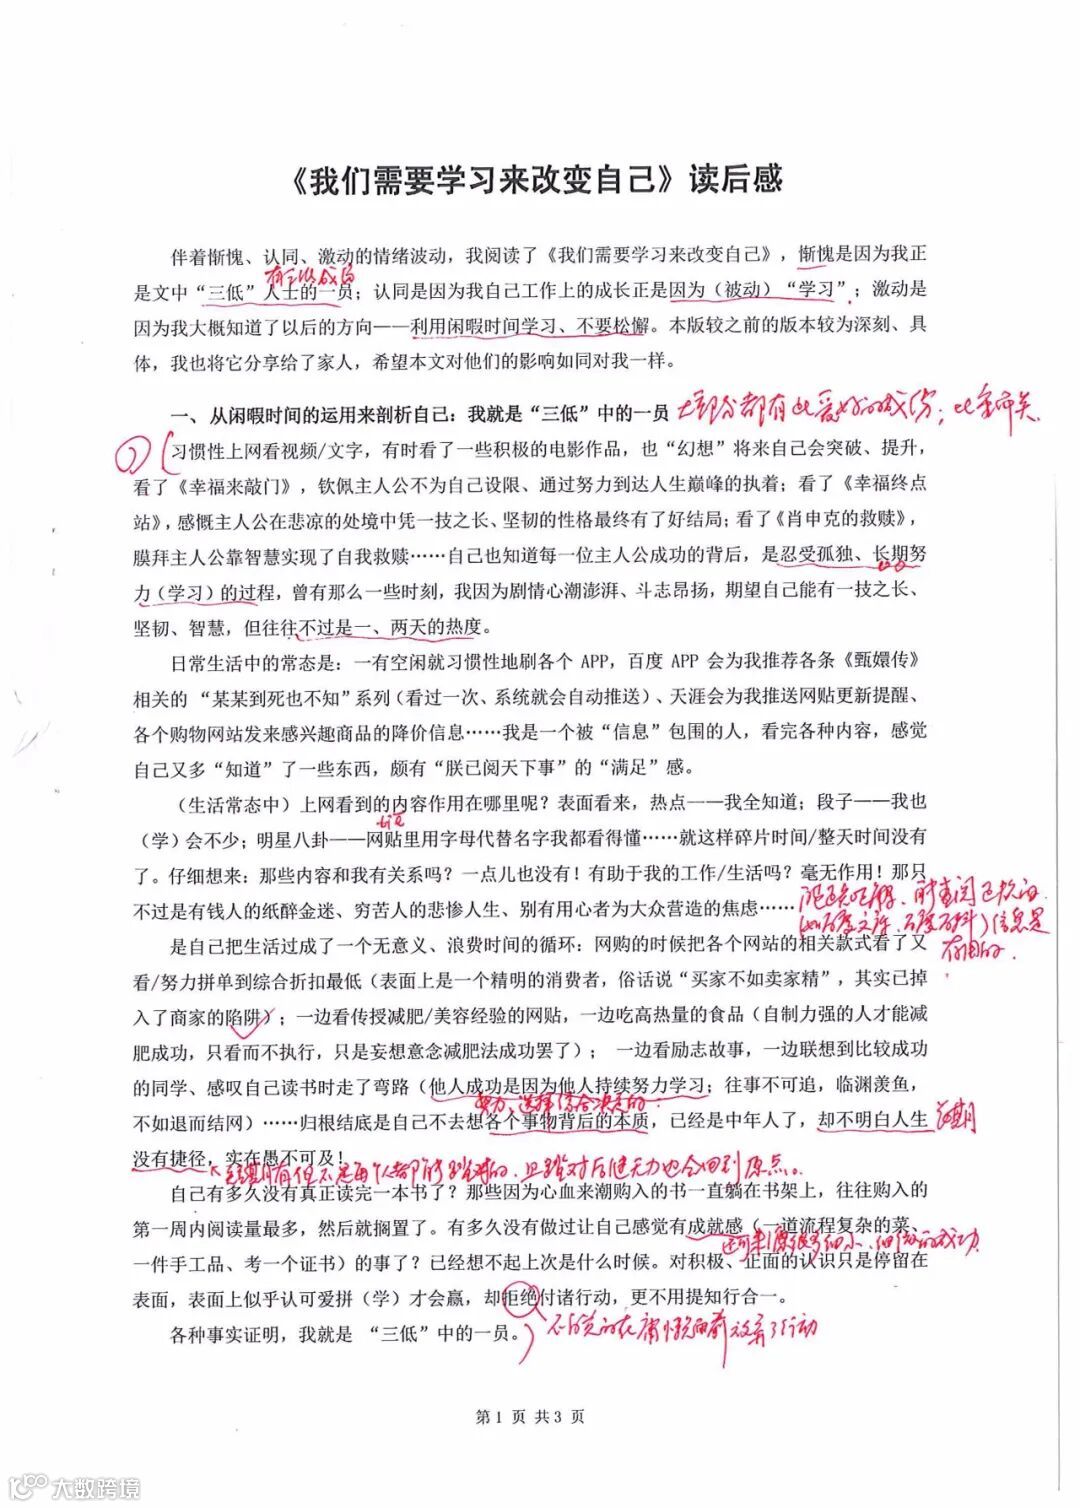 《我们需要学习来改变自己》读后感
伴着惭愧、认同、激动的情绪波动，我阅读了《我们需要学习来改变自己》，惭愧是因为我正
有三低成份
是文中“三低”人士的一员；认同是因为我自己工作上的成长正是因为（被动）“学习”；激动是
因为我大概知道了以后的方向——利用闲暇时间学习、不要松懈。本版较之前的版本较为深刻、具
体，我也将它分享给了家人，希望本文对他们的影响如同对我一样。
一、从闲暇时间的运用来剖析自己：我就是“三低”中的一员
大部分都有此爱好的成份，
习惯性上网看视频/文字，有时看了一些积极的电影作品，也“幻想”将来自己会突破、提升，
看了《幸福来敲门》，钦佩主人公不为自己设限、通过努力到达人生巅峰的执着；看了《幸福终点
站》，感慨主人公在悲凉的处境中凭一技之长、坚韧的性格最终有了好结局；看了《肖申克的救赎》，
膜拜主人公靠智慧实现了自我救赎……自己也知道每一位主人公成功的背后，是忍受孤独、长期努
力（学习）的过程，曾有那么一些时刻，我因为剧情心潮澎湃、斗志昂扬，期望自己能有一技之长、
坚韧、智慧，但往往不过是一、两天的热度。
日常生活中的常态是：一有空闲就习惯性地刷各个 APP，百度 APP 会为我推荐各条《甄嬛传》
相关的 “某某到死也不知”系列（看过一次、系统就会自动推送）、天涯会为我推送网贴更新提醒、
各个购物网站发来感兴趣商品的降价信息……我是一个被“信息”包围的人，看完各种内容，感觉
自己又多“知道”了一些东西，颇有“朕已阅天下事”的“满足”感。
（生活常态中）上网看到的内容作用在哪里呢？表面看来，热点——我全知道；段子——我也
（学）会不少；明星八卦——网贴里用字母代替名字我都看得懂……就这样碎片时间/整天时间没有
了。仔细想来：那些内容和我有关系吗？一点儿也没有！有助于我的工作/生活吗？毫无作用！那只
不过是有钱人的纸醉金迷、穷苦人的悲惨人生、别有用心者为大众营造的焦虑……
（如百度文库、百度百科）信息是
有用的.
是自己把生活过成了一个无意义、浪费时间的循环：网购的时候把各个网站的相关款式看了又
看/努力拼单到综合折扣最低（表面上是一个精明的消费者，俗话说“买家不如卖家精”，其实已掉
入了商家的陷阱）；一边看传授减肥/美容经验的网贴，一边吃高热量的食品（自制力强的人才能减
肥成功，只看而不执行，只是妄想意念减肥法成功罢了）； 一边看励志故事，一边联想到比较成功
的同学、感叹自己读书时走了弯路（他人成功是因为他人持续努力学习；往事不可追，临渊羡鱼，
努力、选择综合决定的.
不如退而结网）……归根结底是自己不去想各个事物背后的本质，已经是中年人了，却不明白人生
没有捷径，实在愚不可及！
自己有多久没有真正读完一本书了？那些因为心血来潮购入的书一直躺在书架上，往往购入的
第一周内阅读量最多，然后就搁置了。有多久没有做过让自己感觉有成就感（一道流程复杂的菜、
一件手工品、考一个证书）的事了？已经想不起上次是什么时候。对积极、正面的认识只是停留在
表面，表面上似乎认可爱拼（学）才会赢，却拒绝付诸行动，更不用提知行合一。
各种事实证明，我就是 “三低”中的一员。
不自觉的在慵懒面前放弃了行动
第 1 页 共 3 页
大数跨境